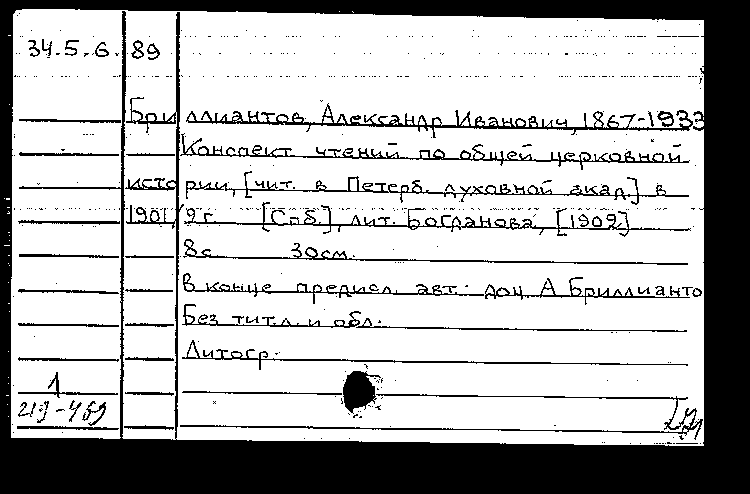 34.5.6.89
Бриллиантов, Александр Иванович, 1867-1933
Конспект чтений по общей церковной
истории, [чит. в Петерб. духовной акад.] в
1901/2 г. [Спб.], лит. Богданова, [1902]
8с 30см.
В конце предисл. авт.: доц А Бриллианто
Без тит.л. и обл.
Литогр.
1
219-489